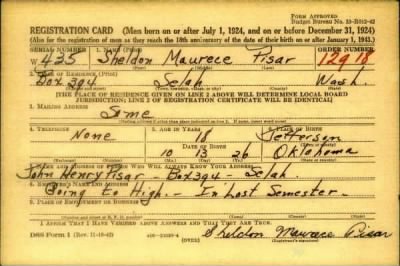 FORM APPROVED
Budget Bureau No. 33-R012-42
REGISTRATION CARD—(Men born on or after July 1, 1924, and on or before December 31, 1924)
(Also for the registration of men as they reach the 18th anniversary of the date of their birth on or after January 1, 1943.)
SERIAL NUMBER 1. NAME (Print) ORDER NUMBER
W 435 Sheldon Maurece Pisar 12918
(First) (Middle) (Last)
2. PLACE OF RESIDENCE (Print)
Box 394 Selah Wash.
[THE PLACE OF RESIDENCE GIVEN ON LINE 2 ABOVE WILL DETERMINE LOCAL BOARD
JURISDICTION; LINE 2 OF REGISTRATION CERTIFICATE WILL BE IDENTICAL]
3. MAILING ADDRESS
Same
4. TELEPHONE 5. AGE IN YEARS 6. PLACE OF BIRTH
None 18 Jefferson
DATE OF BIRTH
10 13 26 Oklahoma
7. NAME AND ADDRESS OF PERSON WHO WILL ALWAYS KNOW YOUR ADDRESS
John Henry Pisar - Box 394 - Selah.
8. EMPLOYER'S NAME AND ADDRESS
Going to High - In Last Semester.
9. PLACE OF EMPLOYMENT OR BUSINESS
I AFFIRM THAT I HAVE VERIFIED ABOVE ANSWERS AND THAT THEY ARE TRUE.
DSS Form 1 (Rev. 11-16-42) (OVER) Sheldon Maurece Pisar
(Registrant's signature)